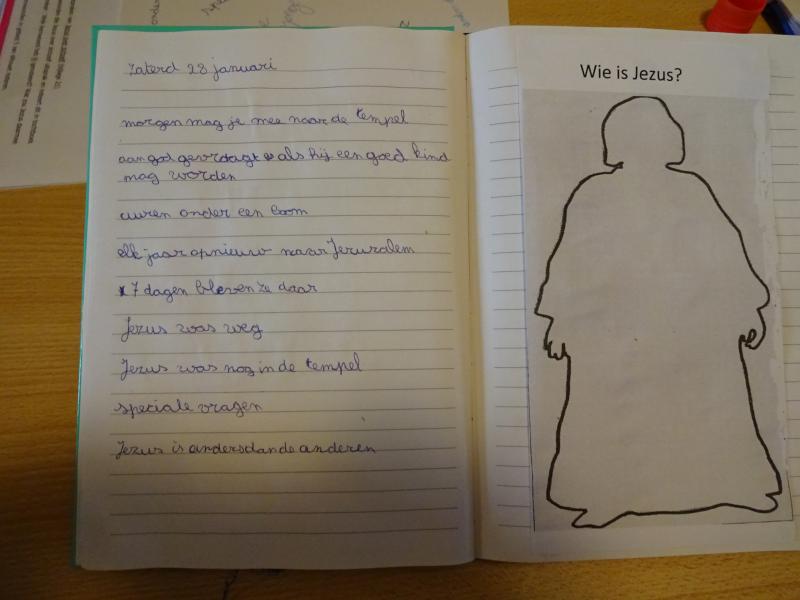 Zaterd 28 januari
morgen mag je mee naar de tempel
aan god gevrdagt als hij een goed kind
mag worden
uuren onder een boom
elk jaar opnieuw naar Jeruzalem
7 dagen bleven ze daar
Jezus was weg
Jezus was nog in de tempel
speciale vragen
Jezus is anders dan de anderen
Wie is Jezus?